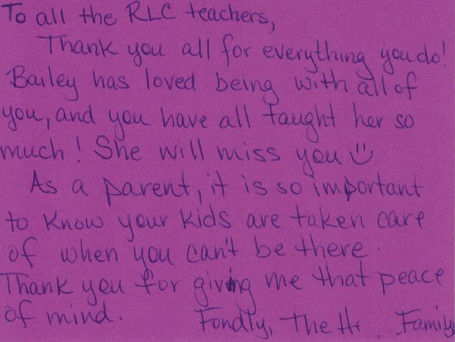 To all the RLC teachers,
Thank you all for everything you do!
Bailey has loved being with all of
you, and you have all taught her so
much! She will miss you
As a parent, it is so important
to know your kids are taken care
of when you can't be there.
Thank you for giving me that peace
of mind. Fondly, The H Family